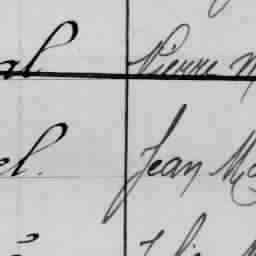 al Pierre M
el. Jean Ma